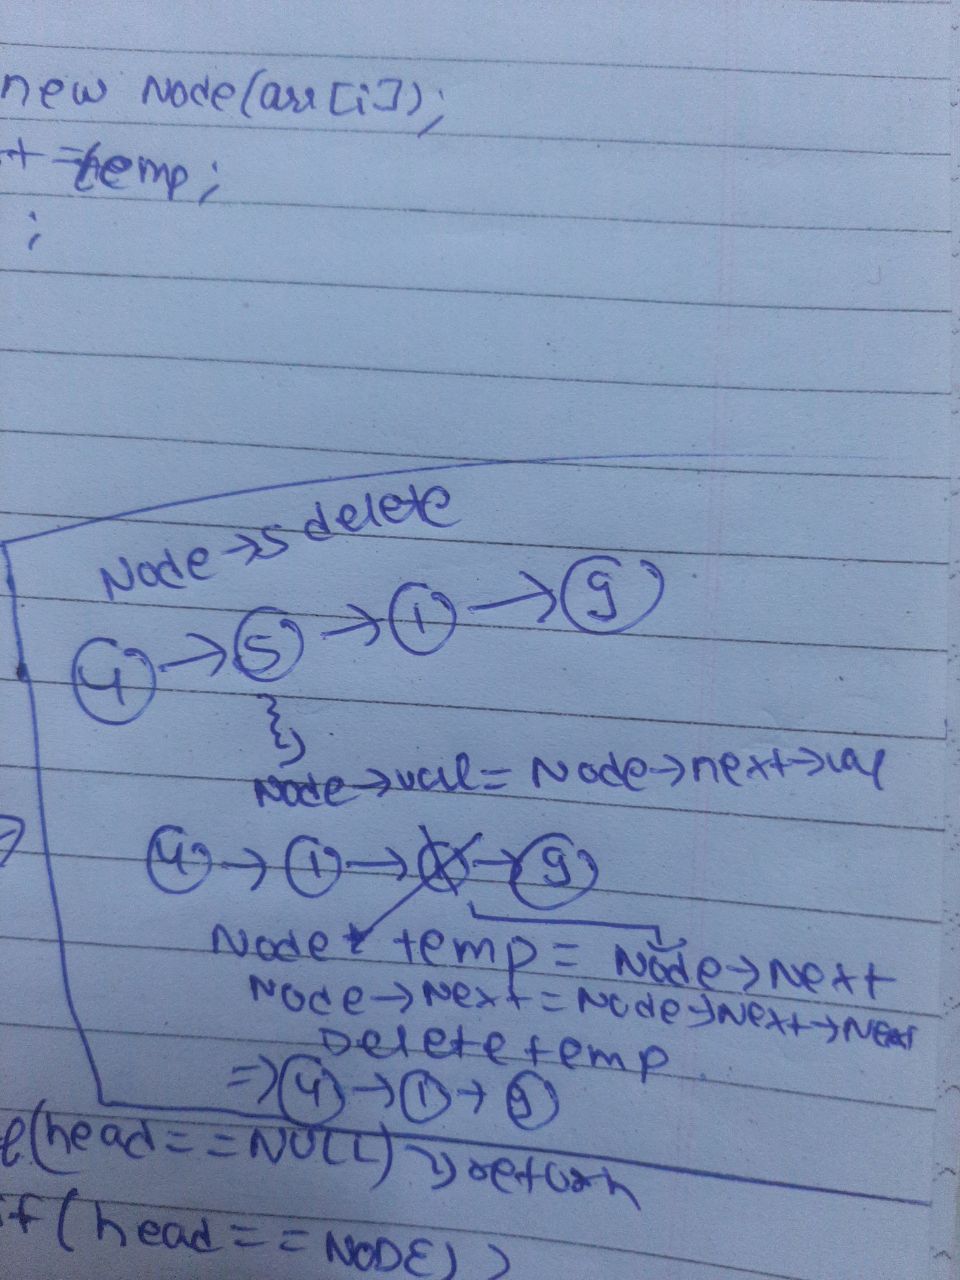 new Node(arr[i]);
t = temp;
;
Node → 5 delete
4 → 5 → 1 → 9
Node → val = Node → next → val
4 → 1 → → 9
Node* temp = Node → Next
Node → Next = Node → Next → Next
Delete temp
⇒ 4 → 1 → 9
(head == NULL) return
if (head == NODE)